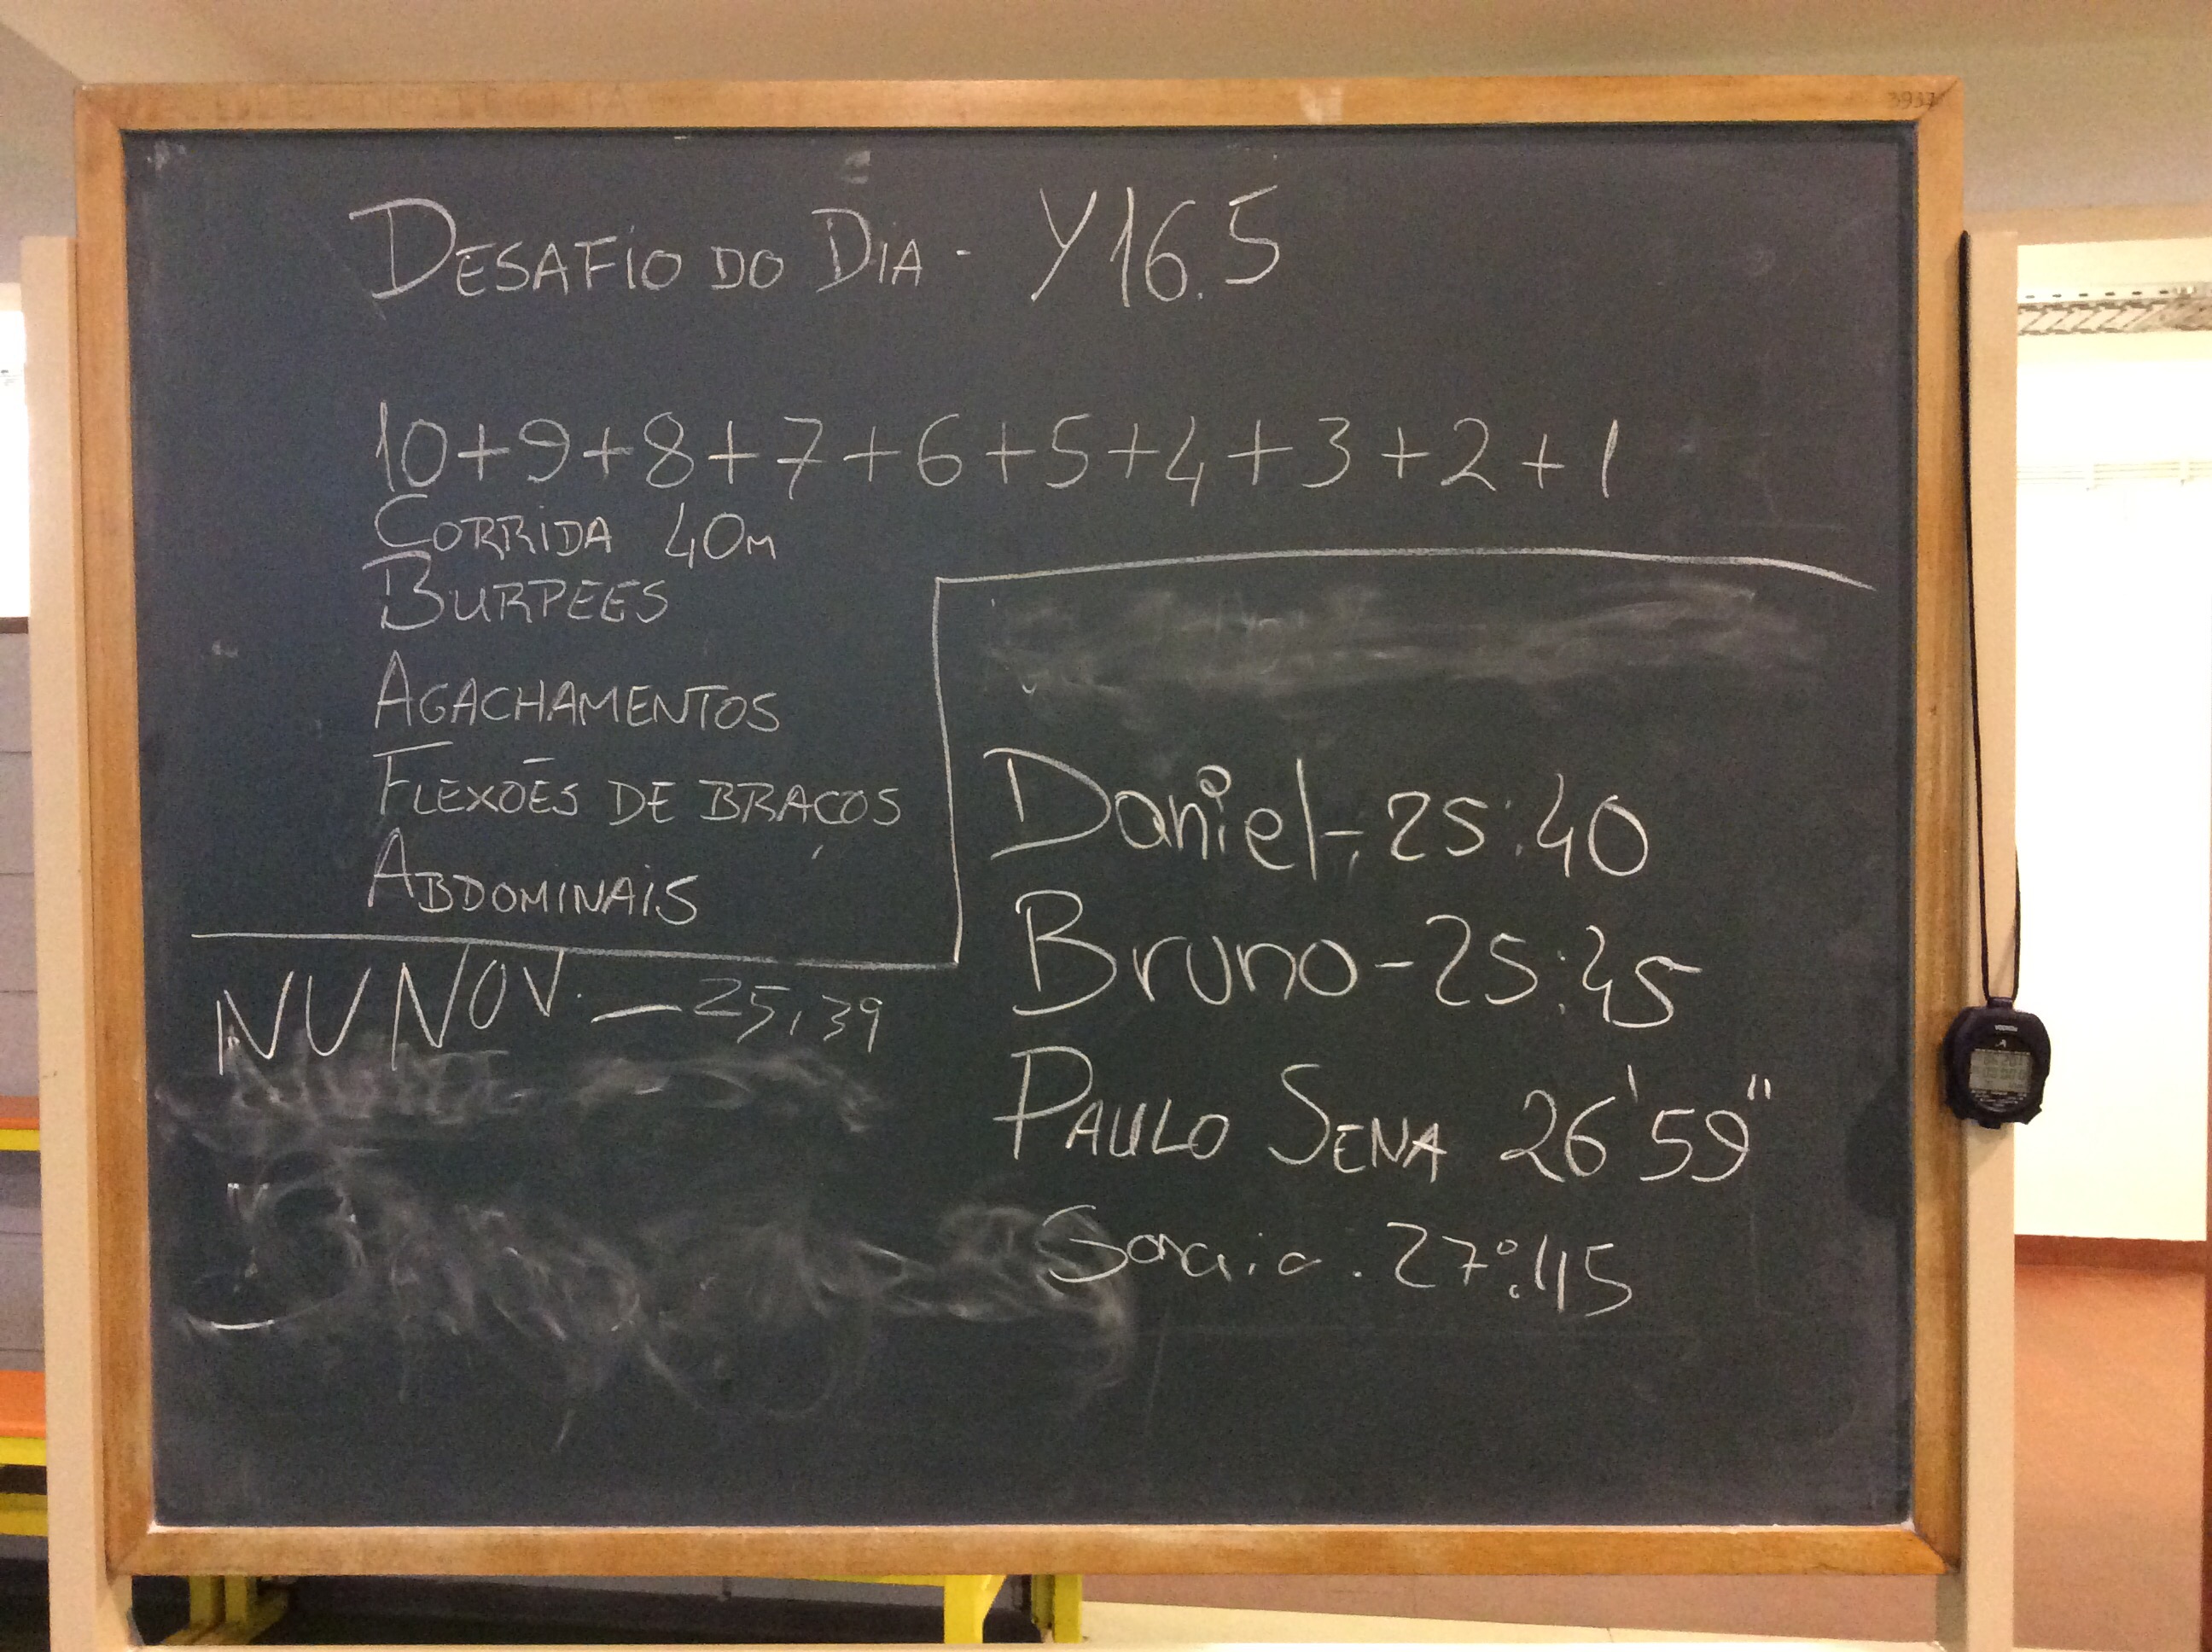 3937
DESAFIO DO DIA - Y16.5
10+9+8+7+6+5+4+3+2+1
CORRIDA 40M
BURPEES
AGACHAMENTOS
FLEXÕES DE BRAÇOS
ABDOMINAIS
NUNO V. — 25,39
Daniel - 25:40
Bruno - 25:45
PAULO SENA 26'59"
Soraia . 27:15